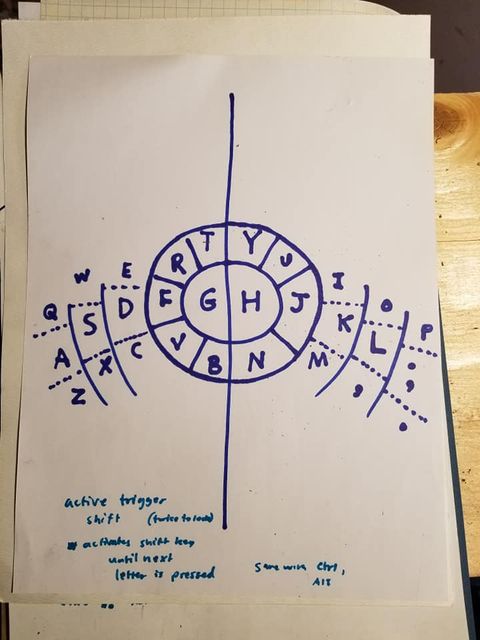 T Y
R U
W E I
Q O
F G H J
S D K P
A L ;
X C V M
B N
Z , .
active trigger
shift (twice to lock)
* activates shift key
until next
letter is pressed
Same with Ctrl,
Alt